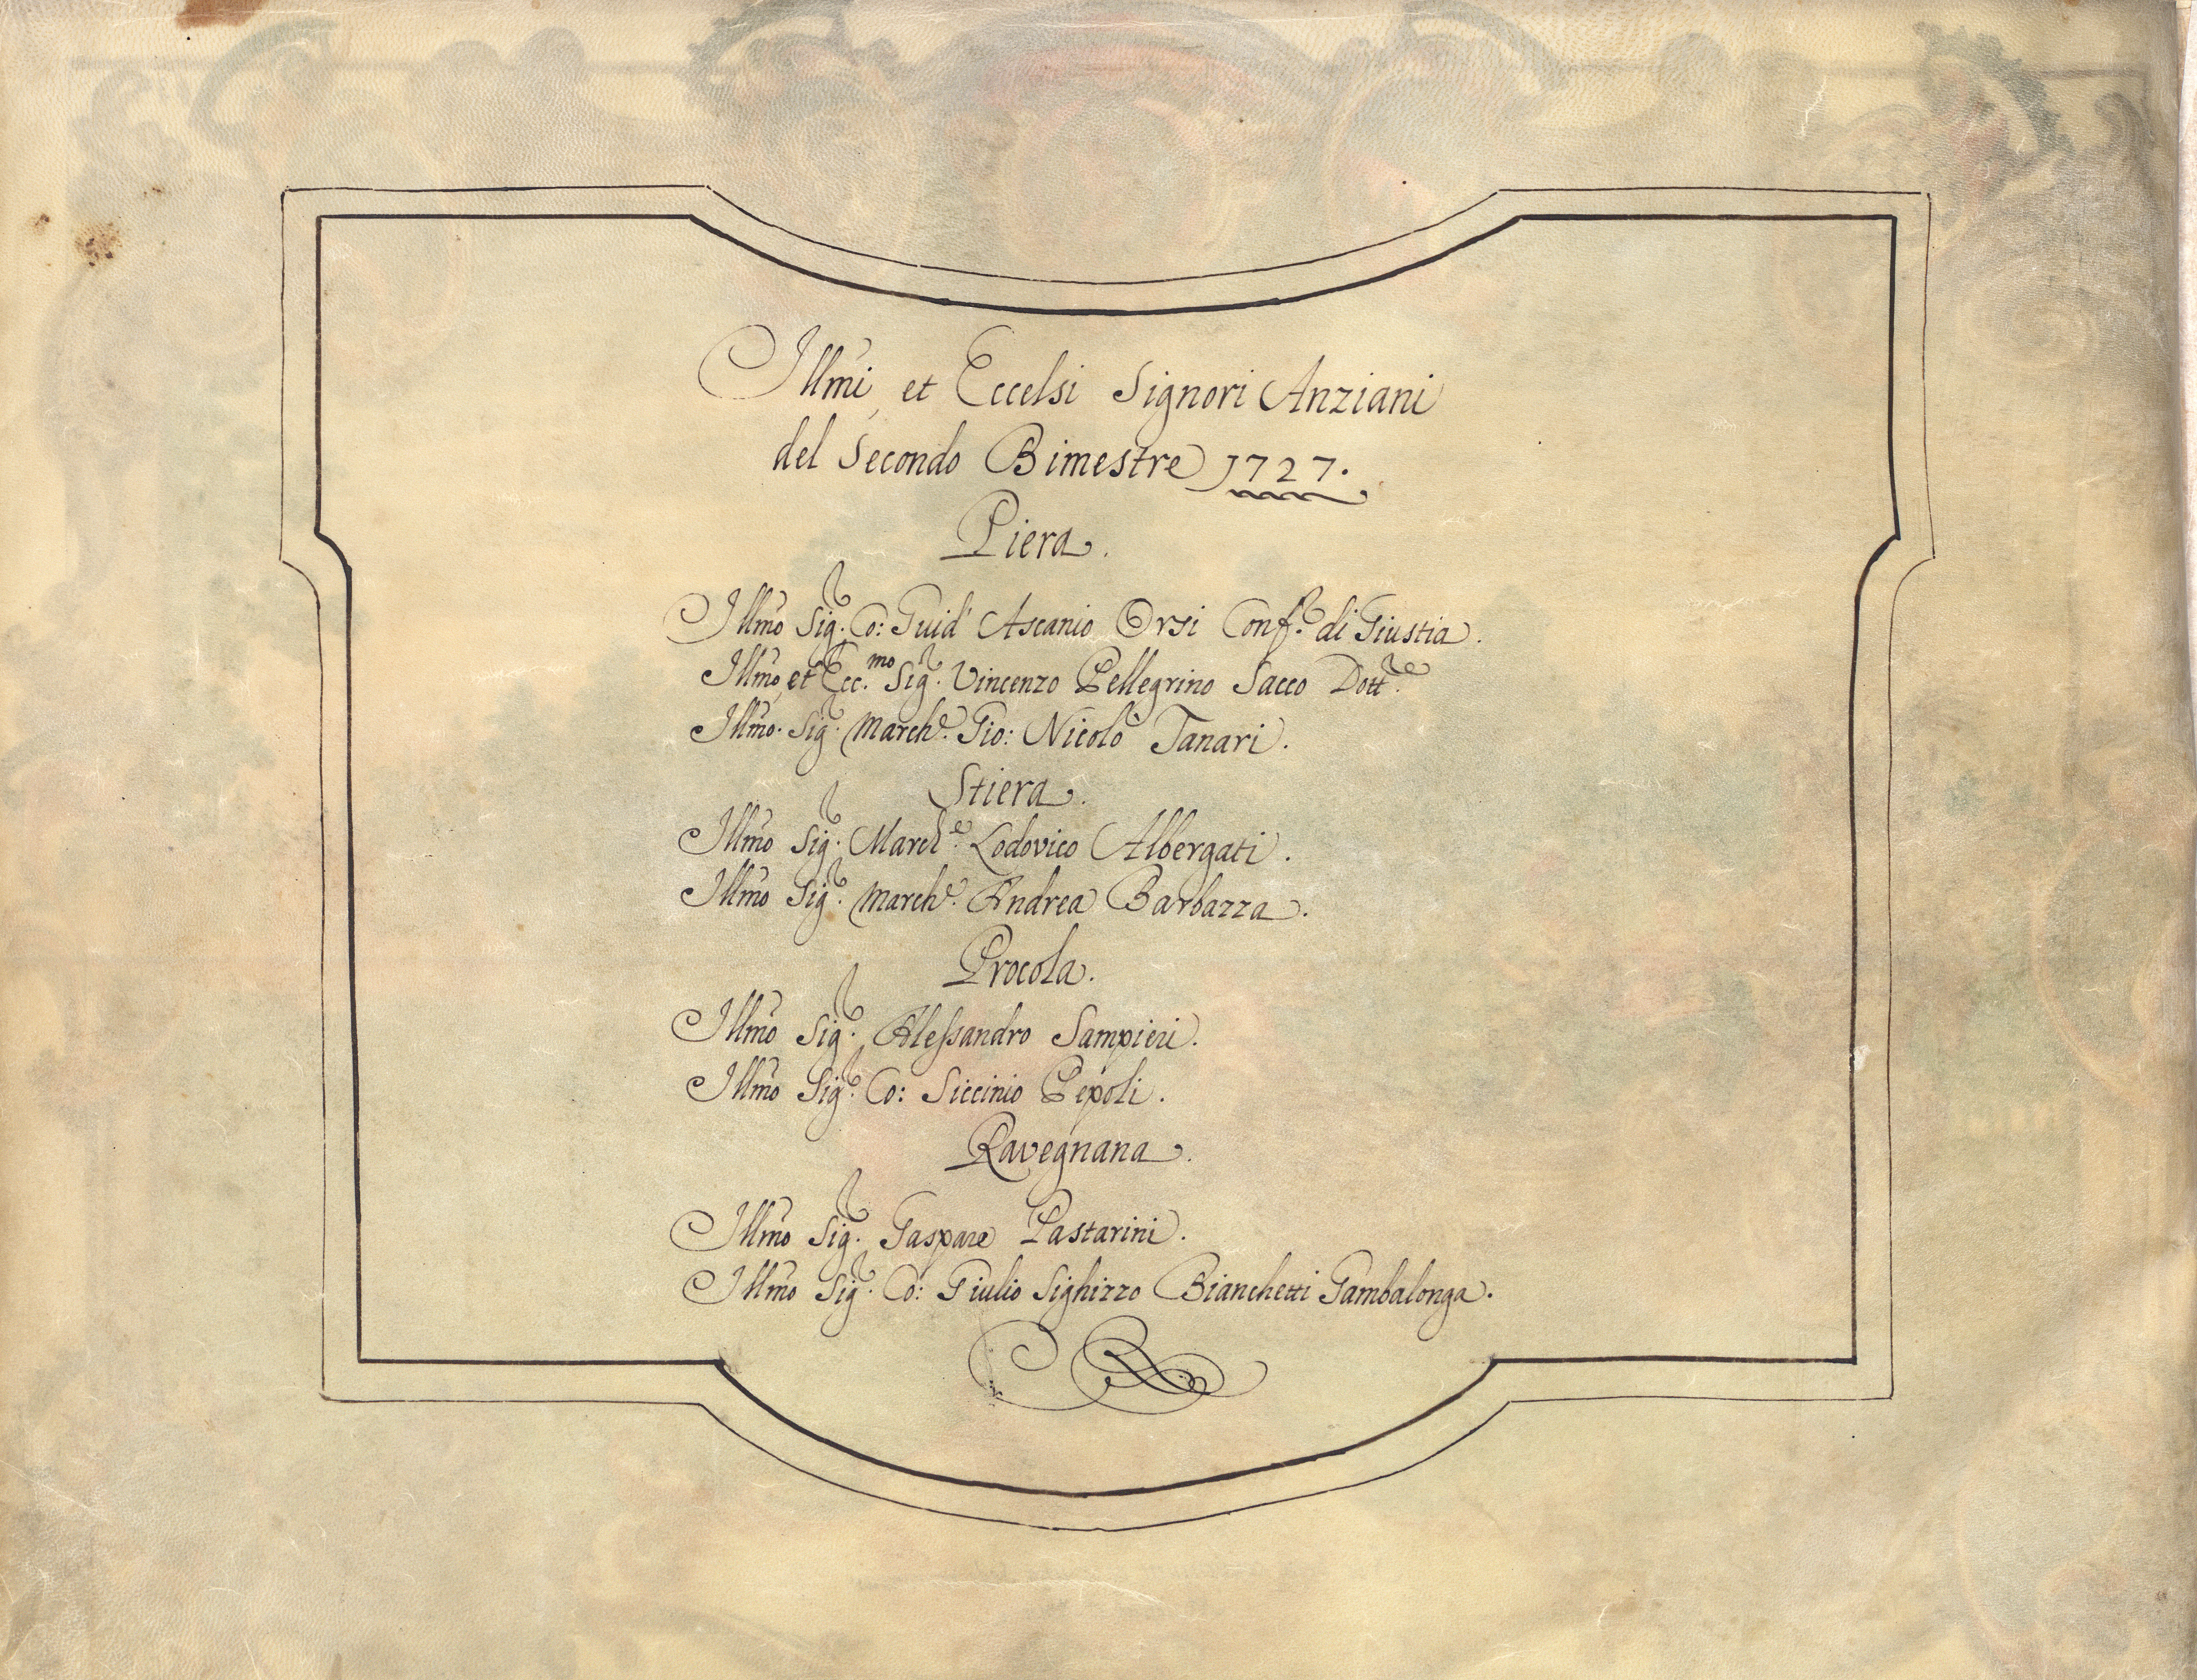 Illmi et Eccelsi Signori Anziani
del Secondo Bimestre 1727.
Piera.
Illmo Sigr. Co: Guid' Ascanio Orsi Confre. di Giustia.
Illmo et Ecc.mo Sigr. Vincenzo Pellegrino Sacco Dottre.
Illmo. Sigr. Marche. Gio: Nicolò Tanari.
Stiera.
Illmo Sigr. Marche. Lodovico Albergati.
Illmo Sigr. Marche. Andrea Barbazza.
Procola.
Illmo Sigr. Alessandro Sampieri.
Illmo Sigr. Co: Siccinio Pepoli.
Ravegnana.
Illmo Sigr. Gaspare Pastarini.
Illmo Sigr. Co: Giulio Sighizzo Bianchetti Gambalonga.